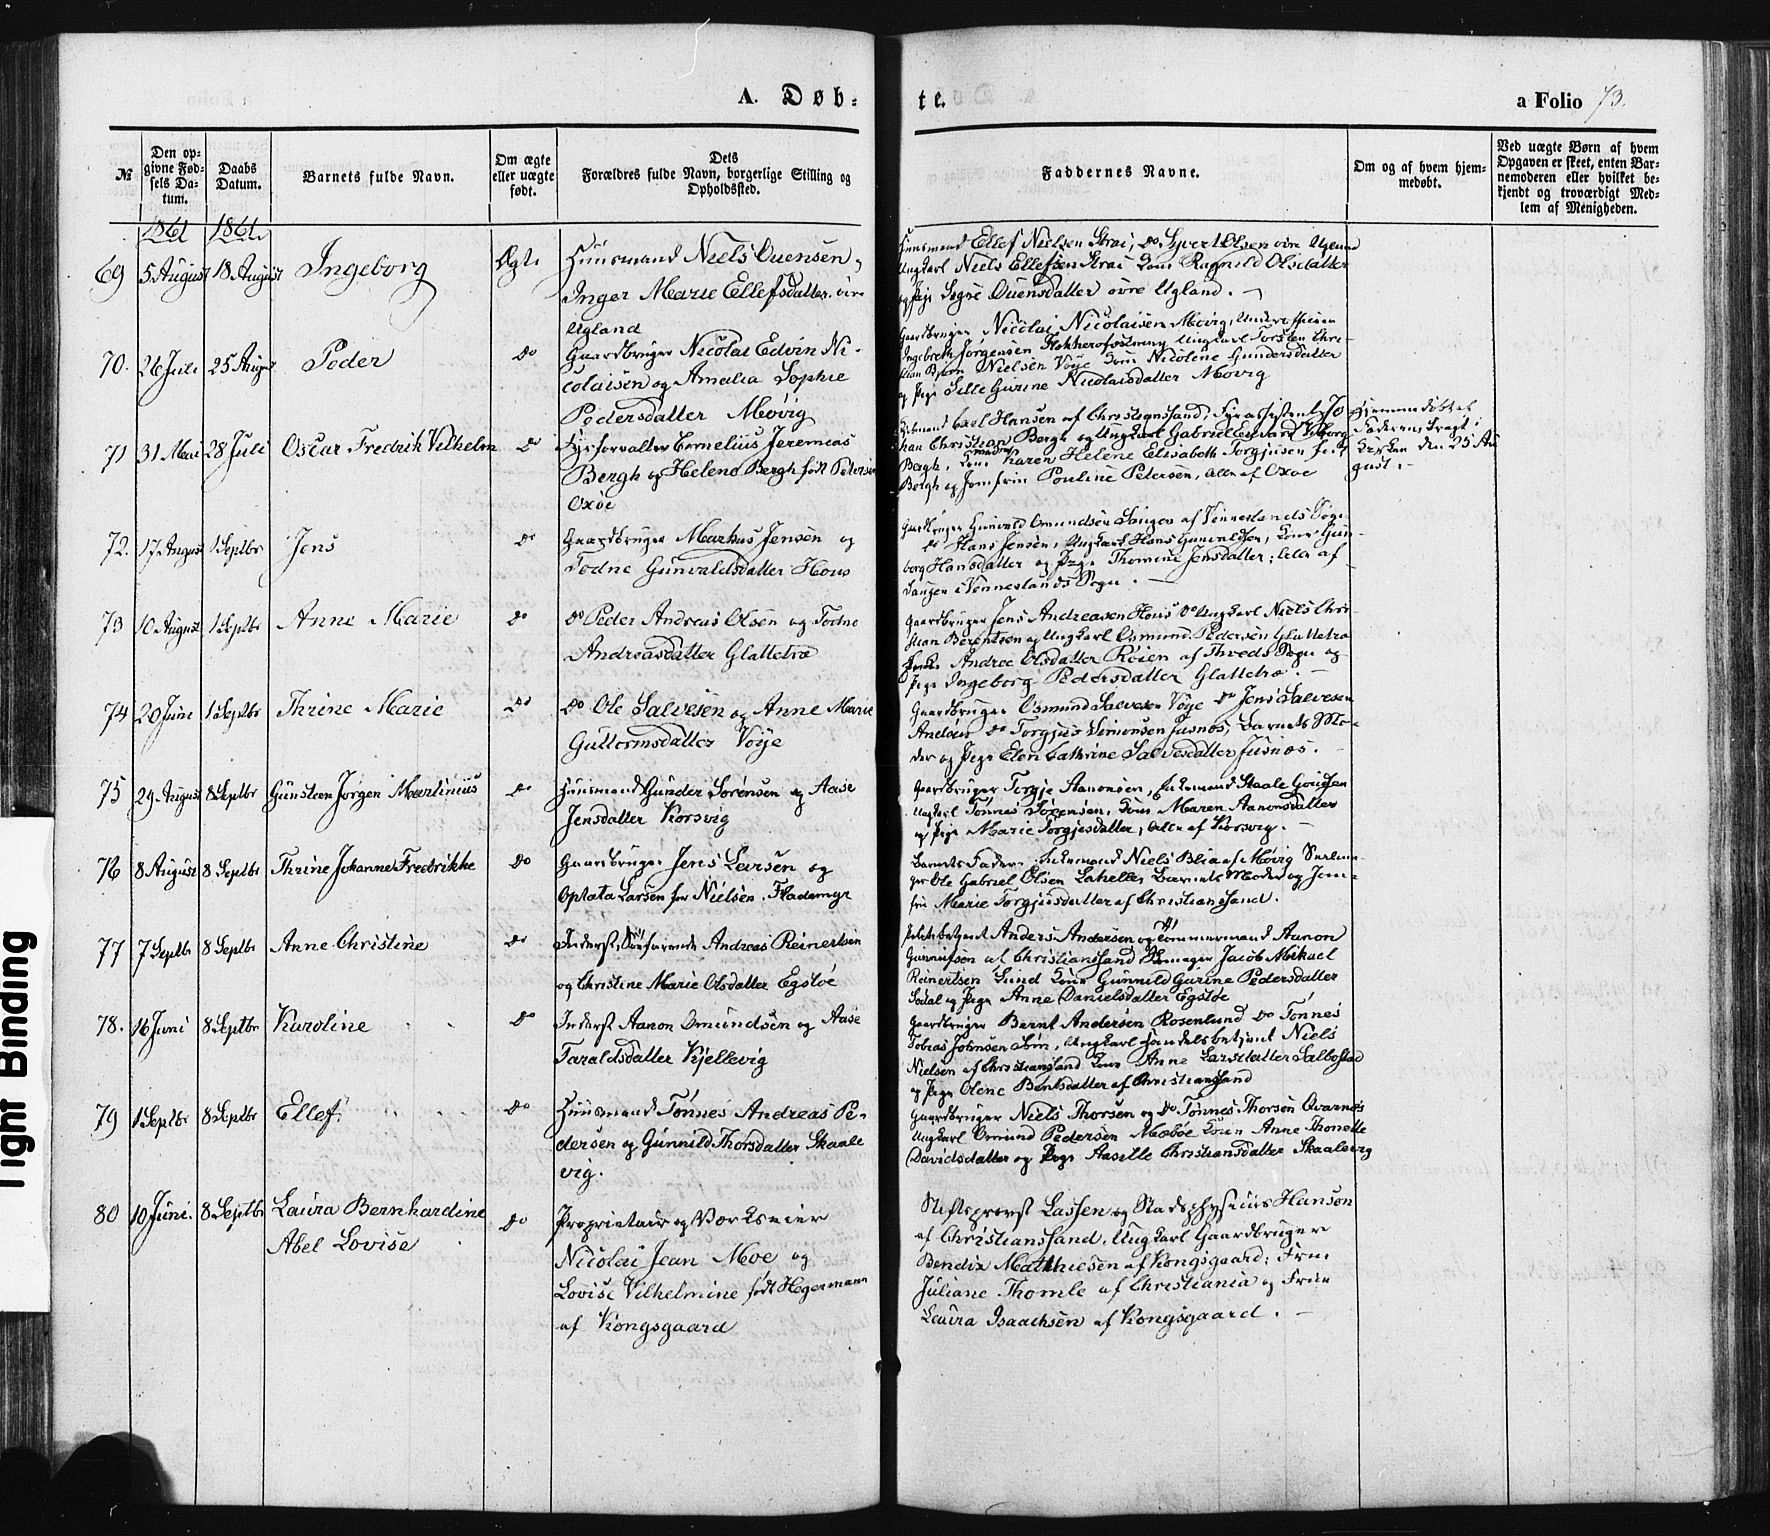 A. Døb-
te.
a Folio 73.
№
Den op-
givne Fød-
sels Da-
tum.
Daabs
Datum.
Barnets fulde Navn.
Om ægte
eller uægte
født.
Dets
Forældres fulde Navn, borgerlige Stilling og
Opholdssted.
Faddernes Navne.
Om og af hvem hjem-
medøbt.
Ved uægte Børn af hvem
Opgaven er skeet, enten Bar-
nemoderen eller hvilket be-
kjendt og troværdigt Med-
lem af Menigheden.
1861 1861.
69 5 August 18 August Ingeborg Ægte Huusmand Niels Ouensen,
Inger Marie Ellefsdatter øvre
Ugland
Huusmand Ellef Nielsen Strai, do Syvert Olsen øvre Ugland
Ungkarl Niels Ellefsen Strai Kone Ragnild Olsdatter
og Pige Signe Ouensdatter øvre Ugland.
70. 26 Juli 25 August Peder do Gaardbruger Nicolai Edvin Ni-
colaisen og Amalia Sophie
Pedersdatter Møvig
Gaardbruger Nicolai Nicolaisen Møvig, Underofficier
Ingebreth Jørgensen Ungkarl Torsten Chri-
stian Bjørn Nielsen Vøje Kone Nicoline Gundersdatter
og Pige Sille Gurine Nicolaisdatter Møvig
71 31 Mai 28 Juli Oscar Fredrik Vilhelm do Fyrforvalter Cornelius Jeremias
Bergh og Helene Bergh født Petersen
Oxøe
Axel Hansen af Christianssand, Fyrassistent Jo-
han Christian Bergh og Ungkarl Gabriel Edvard Viborg
Bergh, Kone Karen Helene Elisabeth Torgjusen født
Bergh og Jomfru Pouline Petersen, alle af Oxøe
Hjemmedøbt af
Faderen, bragt i
Kirken den 25 Au
gust.
72. 17 August 1 Septbr Jens do Gaardbruger Markus Jensen og
Todne Gunvaldsdatter Hous
Gaardbruger Gunvald Omundsen Drangen af Venneslands Sogn
do Hans Jensen, Ungkarl Hans Gunvaldsen, Kone Gun-
borg Hansdatter og Pige Thomine Jensdatter; alle af
Drangen i Venneslands Sogn.
73 10 August 1 Septbr Anne Marie do do Peder Andreas Olsen og Todne
Andreasdatter Glattetræ
Gaardbruger Jens Andreasen Hous do Ungkarl Niels Chri-
stian Berentsen og Ungkarl Osmund Pedersen Glattetræ
Andrea Olsdatter Røien af Thveds Sogn og
Pige Ingeborg Pedersdatter Glattetræ.
74 20 Juni 1 Septbr Thrine Marie do do Ole Salvesen og Anne Marie
Guttormsdatter Vøje
Gaardbruger Osmund Salvesen Vøje do Jens Salvesen
do Torgjus Simonsen Jusnæs, Barnets Mo-
der og Pige Elen Cathrine Salvesdatter Jusnæs.
75 29 August 8 Septbr Gunsteen Jørgen Martinius do Huusmand Gunder Sørensen og Aase
Jensdatter Korsvig
Gaardbruger Torgje Aanonsen, Huusmand Staale
Ungkarl Tønnes Sørensen, Kone Maren Aanonsdatter
og Pige Marie Torgjesdatter, alle af Korsvig.
76 8 August 8 Septbr Thrine Johanne Fredrikke do Gaardbruger Jens Larsen og
Optata Larsen før Nielsen. Flademyr
Barnets Fader Niels Blix af Møvig
Ole Gabriel Olsen Lahelle, Barnets Moder og Jom-
fru Marie Torgjusdatter af Christianssand.
77 7 Septbr 8 Septbr Anne Christine do Inderst, Søefarende Andreas Reinertsen
og Christine Marie Olsdatter Egsløe
Anders Andersen og Tømmermand Aanon
Gunnufsen af Christianssand Jacob Mikael
Reinertsen Lund Kone Gunnild Gurine Pedersdatter
Sødal og Pige Anne Danielsdatter Egsløe
78. 16 Juni 8 Septbr Karoline do Inderst Aanon Omundsen og Aase
Taraldsdatter Kjellevig
Gaardbruger Bernt Andersen Rosenlund do Tønnes
Tobias Johnsen Ungkarl Handelsbetjent Niels
Nielsen af Christianssand Kone Anne Larsdatter
og Pige Olene Bentsdatter af Christianssand
79 1 Septbr 8 Septbr Ellef. do Huusmand Tønnes Andreas Pe-
dersen og Gunnild Thorsdatter Skaale
vig.
Gaardbruger Niels Thorsen og do Tønnes Thorsen Qvarnes
Ungkarl Omund Pedersen Mæbøe Kone Anne Thonette
Davidsdatter og Pige Aasille Christiansdatter Skaalevig
80 10 Juni. 8 Septbr Laura Bernhardine
Abel Lovise
do Proprietair og Værkseier
Nicolai Jean Moe og
Lovise Vilhelmine født Hegermann
af Kongsgaard
Stiftsprovst Lassen og Stadsphysicus Hanson
af Christianssand, Ungkarl Gaardbruger
Bendix Matthiesen af Kongsgaard; Frue
Juliane Thomle af Christiania og Frue
Laura Isaachsen af Kongsgaard.
Tight Binding